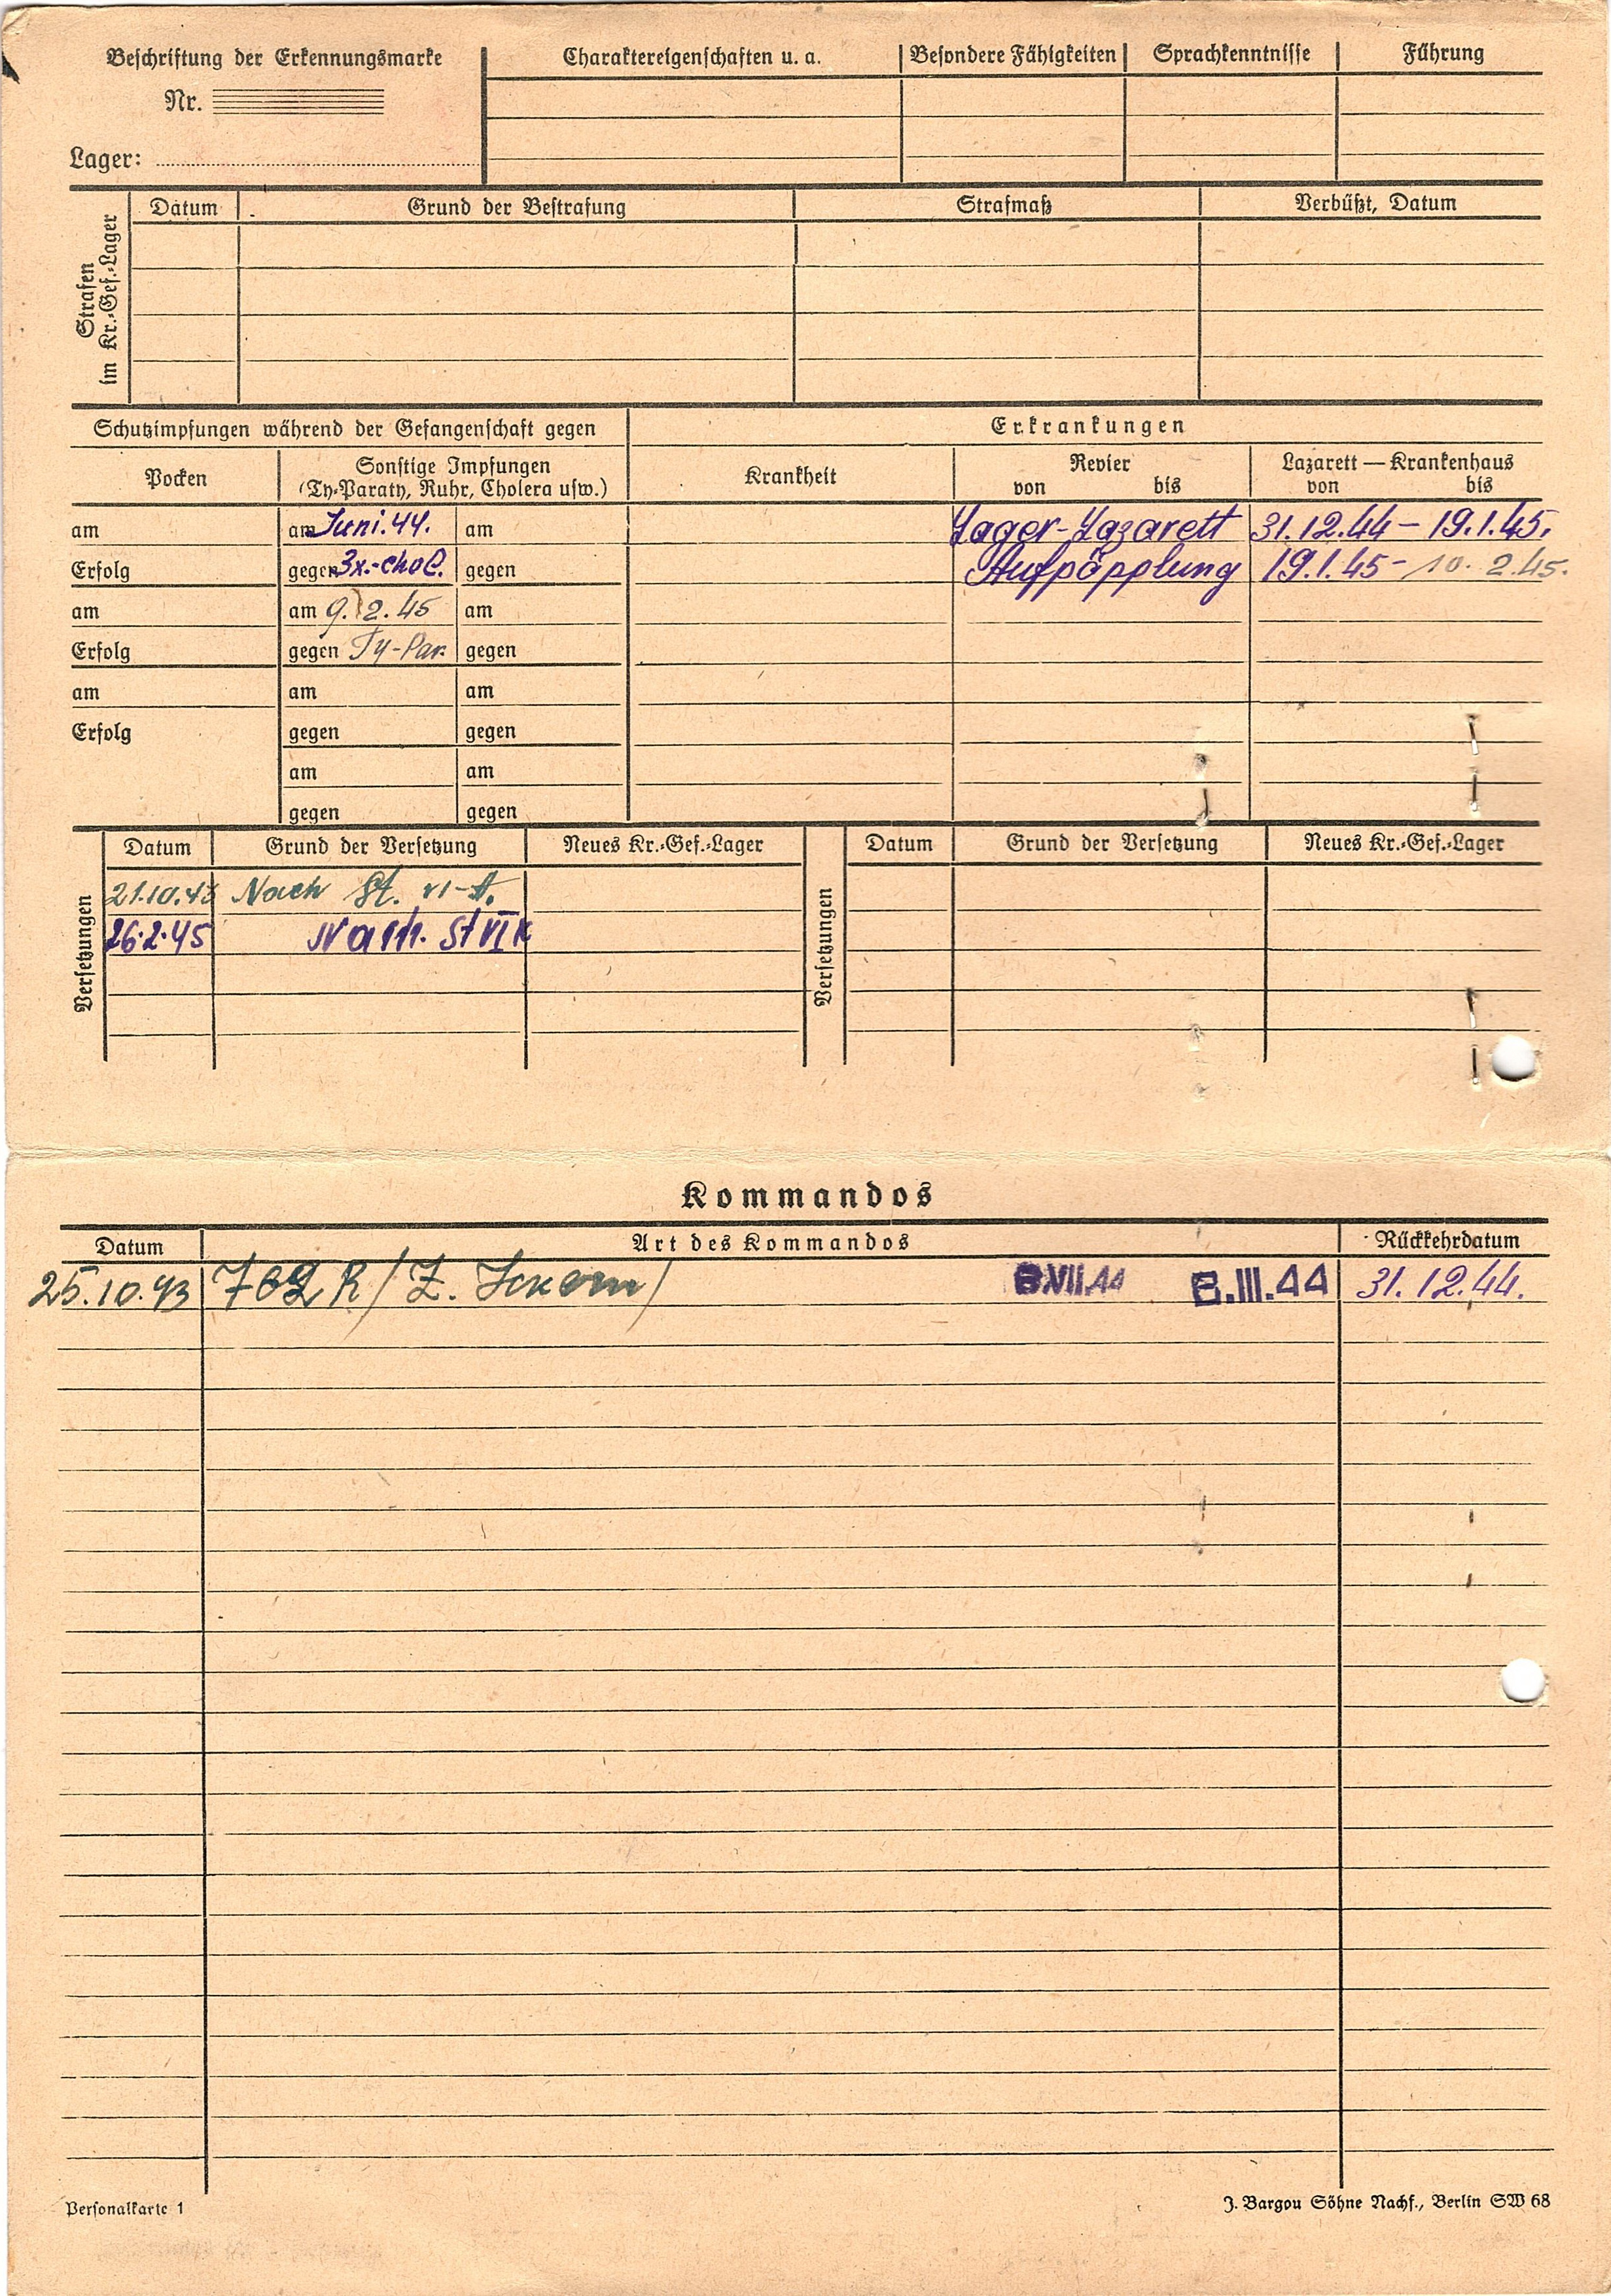 Beschriftung der Erkennungsmarke
Nr.
Lager:
Charaktereigenschaften u. a.
Besondere Fähigkeiten
Sprachkenntnisse
Führung
Strafen im Kr.-Gef.-Lager
Datum
Grund der Bestrafung
Strafmaß
Verbüßt, Datum
Schutzimpfungen während der Gefangenschaft gegen
Erkrankungen
Pocken
Sonstige Impfungen
(Ty-Paraty, Ruhr, Cholera usw.)
Krankheit
Revier
von bis
Lazarett — Krankenhaus
von bis
am am Juni.44. am Lager-Lazarett 31.12.44 – 19.1.45.
Erfolg gegen 3x.-chol. gegen Aufpöpplung 19.1.45 - 10. 2.45.
am am 9.2.45 am
Erfolg gegen Ty-Par. gegen
am am am
Erfolg gegen gegen
am am
gegen gegen
Versetzungen
Datum Grund der Versetzung Neues Kr.-Gef.-Lager
21.10.43 Nach St. VI-A.
26.2.45 Nach. St VI K
Versetzungen
Datum Grund der Versetzung Neues Kr.-Gef.-Lager
Kommandos
Datum Art des Kommandos Rückkehrdatum
25.10.43 762 R / Z. Ickern / 8.VII.44 8.III.44 31.12.44.
Personalkarte 1
J. Bargou Söhne Nachf., Berlin SW 68